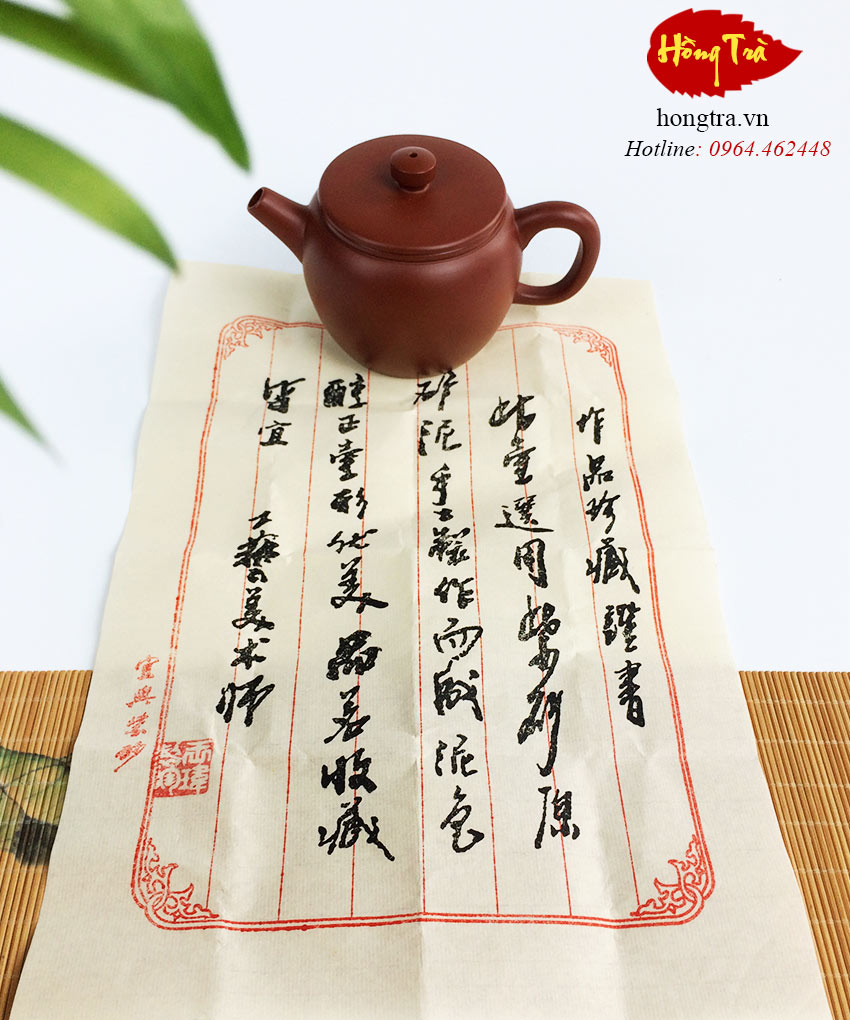 Hồng Trà
hongtra.vn
Hotline: 0964.462448
作品珍藏證書
此壶選用紫砂原
矿泥手工製作而成泥色
醇正壶形优美品茗收藏
皆宜 工藝美术师
宜興紫砂